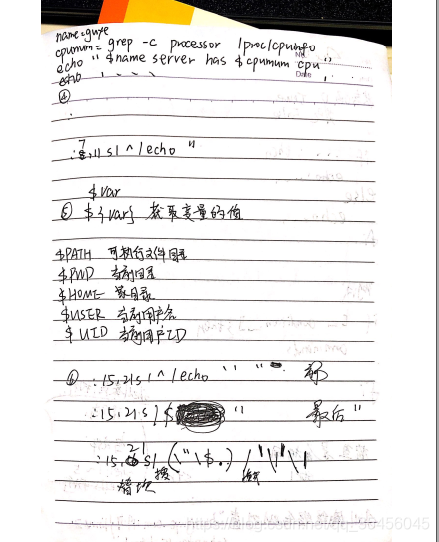 name=guye
cpumum= grep -c processor /proc/cpuinfo
echo "$name server has $cpumum cpu"
echo
No
Date
④
:7,11 s/^/echo "
$var
⑤ ${var} 获取变量的值
$PATH 可执行文件目录
$PWD 当前目录
$HOME 家目录
$USER 当前用户名
$UID 当前用户ID
⑥ :15,21s/^/echo
:15,21s/$ " 最后"
:15,21s/(\"\$.)/"\1"\1
替换